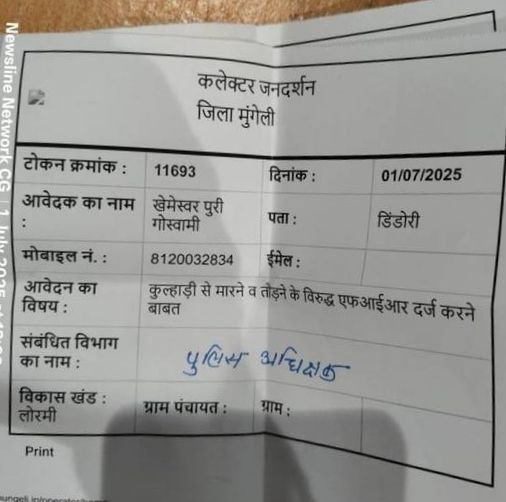 कलेक्टर जनदर्शन
जिला मुंगेली
टोकन क्रमांक : 11693 दिनांक : 01/07/2025
आवेदक का नाम : खेमेस्वर पुरी गोस्वामी पता : डिंडोरी
मोबाइल नं. : 8120032834 ईमेल :
आवेदन का विषय : कुल्हाड़ी से मारने व तोड़ने के विरुद्ध एफआईआर दर्ज करने बाबत
संबंधित विभाग का नाम : पुलिस अधिक्षक
विकास खंड : लोरमी ग्राम पंचायत : ग्राम :
Print
Newsline Network CG | 1 July 2025 at